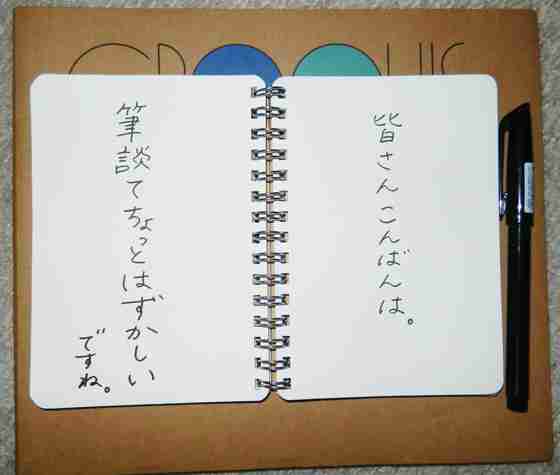 皆さんこんばんは。
筆談てちょっとはずかしい
ですね。